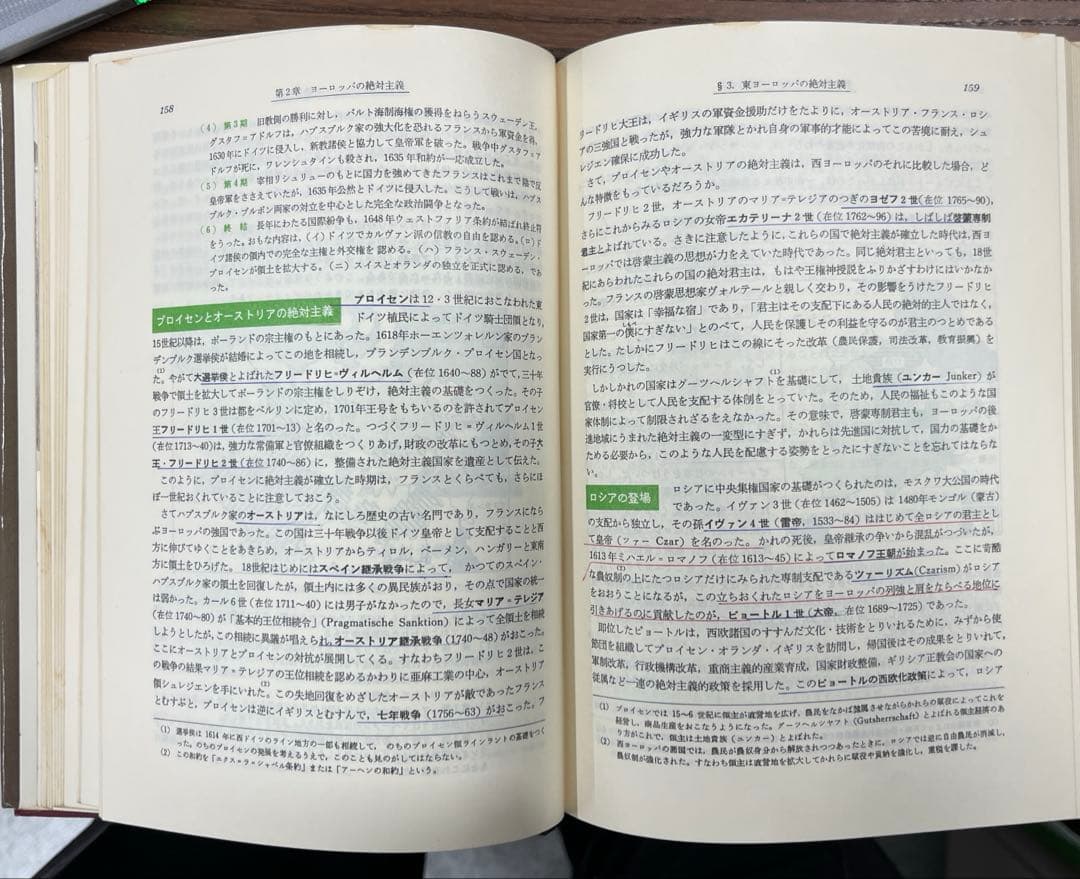 158
第2章 ヨーロッパの絶対主義
(4) 第3期 旧教側の勝利に対し，バルト海制海権の獲得をねらうスウェーデン王，
グスタフ＝アドルフは，ハプスブルク家の強大化を恐れるフランスから軍資金を得，
1630年にドイツに侵入し，新教諸侯と協力して皇帝軍を破った。戦争中グスタフ＝ア
ドルフが死に，ワレンシュタインも殺され，1635年和約が一応成立した。
(5) 第4期 宰相リシュリューのもとに国力を強めてきたフランスはこれまで陰で反
皇帝軍をささえていたが，1635年公然とドイツに侵入した。こうして戦いは，ハプス
ブルク・ブルボン両家の対立を中心とした完全な政治闘争となった。
(6) 終結 長年にわたる国際紛争も，1648年ウェストファリア条約が結ばれ終止符
をうった。おもな内容は，(イ)ドイツでカルヴァン派の信教の自由を認める。(ロ)ド
イツ諸侯の領内での完全な主権と外交権を認める。(ハ) フランス・スウェーデン・
プロイセンが領土を拡大する。(ニ) スイスとオランダの独立を正式に認める，であ
った。
プロイセンとオーストリアの絶対主義
プロイセンは12・3世紀におこなわれた東
ドイツ植民によってドイツ騎士団領となり，
15世紀以降は，ポーランドの宗主権のもとにあった。1618年ホーエンツォレルン家のブラン
デンブルク選挙侯が結婚によってこの地を相続し，ブランデンブルク・プロイセン国となっ
た。(1)やがて大選挙侯とよばれたフリードリヒ＝ヴィルヘルム (在位1640〜88) がでて，三十年
戦争で領土を拡大してポーランドの宗主権をしりぞけ，絶対主義の基礎をつくった。その子
のフリードリヒ3世は都をベルリンに定め，1701年王号をもちいるのを許されてプロイセン
王フリードリヒ1世 (在位1701〜13) と名のった。つづくフリードリヒ＝ヴィルヘルム1世
(在位1713〜40)は，強力な常備軍と官僚組織をつくりあげ，財政の改革にもつとめ，その子大
王・フリードリヒ2世 (在位1740〜86) に，整備された絶対主義国家を遺産として伝えた。
このように，プロイセンに絶対主義が確立した時期は，フランスとくらべても，さらにほ
ぼ一世紀おくれていることに注意しておこう。
さてハプスブルク家のオーストリアは，なにしろ歴史の古い名門であり，フランスになら
ぶヨーロッパの強国であった。この国は三十年戦争以後ドイツ皇帝として支配することと西
方に伸びてゆくことをあきらめ，オーストリアからティロル，ベーメン，ハンガリーと東南
方に領土をひろげた。18世紀はじめにはスペイン継承戦争によって，かつてのスペイン・
ハプスブルク家の領土を回復したが，領土内には多くの異民族がおり，その点で国家の統一
は弱かった。カール6世 (在位1711〜40) には男子がなかったので，長女マリア＝テレジア
(在位1740〜80) が「基本的王位相続令」(Pragmatische Sanktion) によって全領土を相続
しようとしたが，この相続に異議が唱えられ，オーストリア継承戦争(1740〜48) がおこった。
ここにオーストリアとプロイセンの対抗が展開してくる。すなわちフリードリヒ2世は，こ
の戦争の結果マリア＝テレジアの王位相続を認めるかわりに亜麻工業の中心，オーストリア
領シュレジエンを手にいれた。(2)この失地回復をめざしたオーストリアが敵であったフランス
とむすぶと，プロイセンは逆にイギリスとむすんで，七年戦争 (1756〜63) がおこった。フ
(1) 選挙侯は1614年に西ドイツのライン地方の一部も相続して，のちのプロイセン領ラインラントの基礎をつく
った。のちのプロイセンの発展を考えるうえで，このことも見のがしてはならない。
(2) この和約を「エクス＝ラ＝シャペル条約」または「アーヘンの和約」という。
§3. 東ヨーロッパの絶対主義
159
リードリヒ大王は，イギリスの軍資金援助だけをたよりに，オーストリア・フランス・ロシ
アの三強国と戦ったが，強力な軍隊とかれ自身の軍事的才能によってこの苦境に耐え，シュ
レジエン確保に成功した。
さて，プロイセンやオーストリアの絶対主義は，西ヨーロッパのそれに比較した場合，ど
んな特徴をもっているだろうか。
フリードリヒ2世，オーストリアのマリア＝テレジアのつぎのヨゼフ2世(在位1765〜90)，
さらにこれからみるロシアの女帝エカテリーナ2世 (在位1762〜96) は，しばしば啓蒙専制
君主とよばれている。さきに注意したように，これらの国で絶対主義が確立した時代は，西ヨ
ーロッパでは啓蒙主義の思想が力をえていた時代であった。同じ絶対君主といっても，18世
紀にあらわれたこれらの国の絶対君主は，もはや王権神授説をふりかざすわけにはいかなか
った。フランスの啓蒙思想家ヴォルテールと親しく交わり，その影響をうけたフリードリヒ
2世は，国家は「幸福な宿」であり，「君主はその支配下にある人民の絶対的主人ではなく，
国家第一の僕にすぎない」とのべて，人民を保護しその利益を守るのが君主のつとめである
とした。たしかにフリードリヒはこの線にそった改革 (農民保護，司法改革，教育振興) を
実行にうつした。
しかしかれの国家はグーツヘルシャフト(1)を基礎にして，土地貴族 (ユンカー Junker) が
官僚・将校として人民を支配する体制をとっていた。そのため，人民の福祉もこのような国
家体制によって制限されざるをえなかった。その意味で，啓蒙専制君主も，ヨーロッパの後
進地域にうまれた絶対主義の一変型にすぎず，かれらは先進国に対抗して，国力の基礎をか
ためる必要から，このような人民を配慮する姿勢をとったにすぎないことを忘れてはならな
い。
ロシアの登場
ロシアに中央集権国家の基礎がつくられたのは，モスクワ大公国の時代
であった。イヴァン3世 (在位1462〜1505) は1480年モンゴル (蒙古)
の支配から独立し，その孫イヴァン4世 (雷帝，1533〜84) ははじめて全ロシアの君主とし
て皇帝 (ツァー Czar) を名のった。かれの死後，皇帝継承の争いから混乱がつづいたが，
1613年ミハエル＝ロマノフ (在位1613〜45) によってロマノフ王朝が始まった。ここに苛酷
な農奴制(2)の上にたつロシアだけにみられた専制支配であるツァーリズム(Czarism)がロシア
をおおうことになるが，この立ちおくれたロシアをヨーロッパの列強と肩をならべる地位に
引きあげるのに貢献したのが，ピョートル1世 (大帝，在位1689〜1725) であった。
即位したピョートルは，西欧諸国のすすんだ文化・技術をとりいれるために，みずから使
節団を組織してプロイセン・オランダ・イギリスを訪問し，帰国後はその成果をとりいれて，
軍制改革，行政機構改革，重商主義的産業育成，国家財政整備，ギリシア正教会の国家への
従属など一連の絶対主義的政策を採用した。このピョートルの西欧化政策によって，ロシア
(1) プロイセンでは15〜6世紀に領主が直営地を広げ，農民をなかば隷属させながらかれらの賦役によってこれを
経営し，商品生産をおこなうようになった。グーツヘルシャフト(Gutsherrschaft) とよばれる領主経済のあ
り方がこれで，領主は土地貴族 (ユンカー) とよばれた。
(2) 西ヨーロッパの諸国では，農民が農奴身分から解放されつつあったときに，ロシアでは逆に自由農民が消滅し，
農奴制が強化された。すなわち領主は直営地を拡大してかれらに賦役や貢納を強化し，重税を課した。